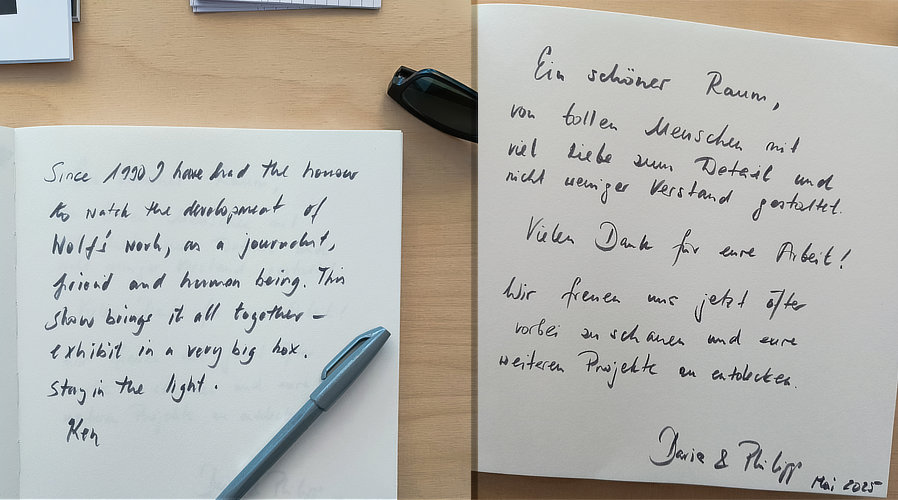 Since 1990 I have had the honour
to watch the development of
Wolf's work, as a journalist,
friend and human being. This
show brings it all together –
exhibit in a very big box.
Stay in the light.
Ken
Ein schöner Raum,
von tollen Menschen mit
viel Liebe zum Detail und
nicht weniger Verstand gestaltet.
Vielen Dank für eure Arbeit!
Wir freuen uns jetzt öfter
vorbei zu schauen und eure
weiteren Projekte zu entdecken.
Daria & Philipp
Mai 2025